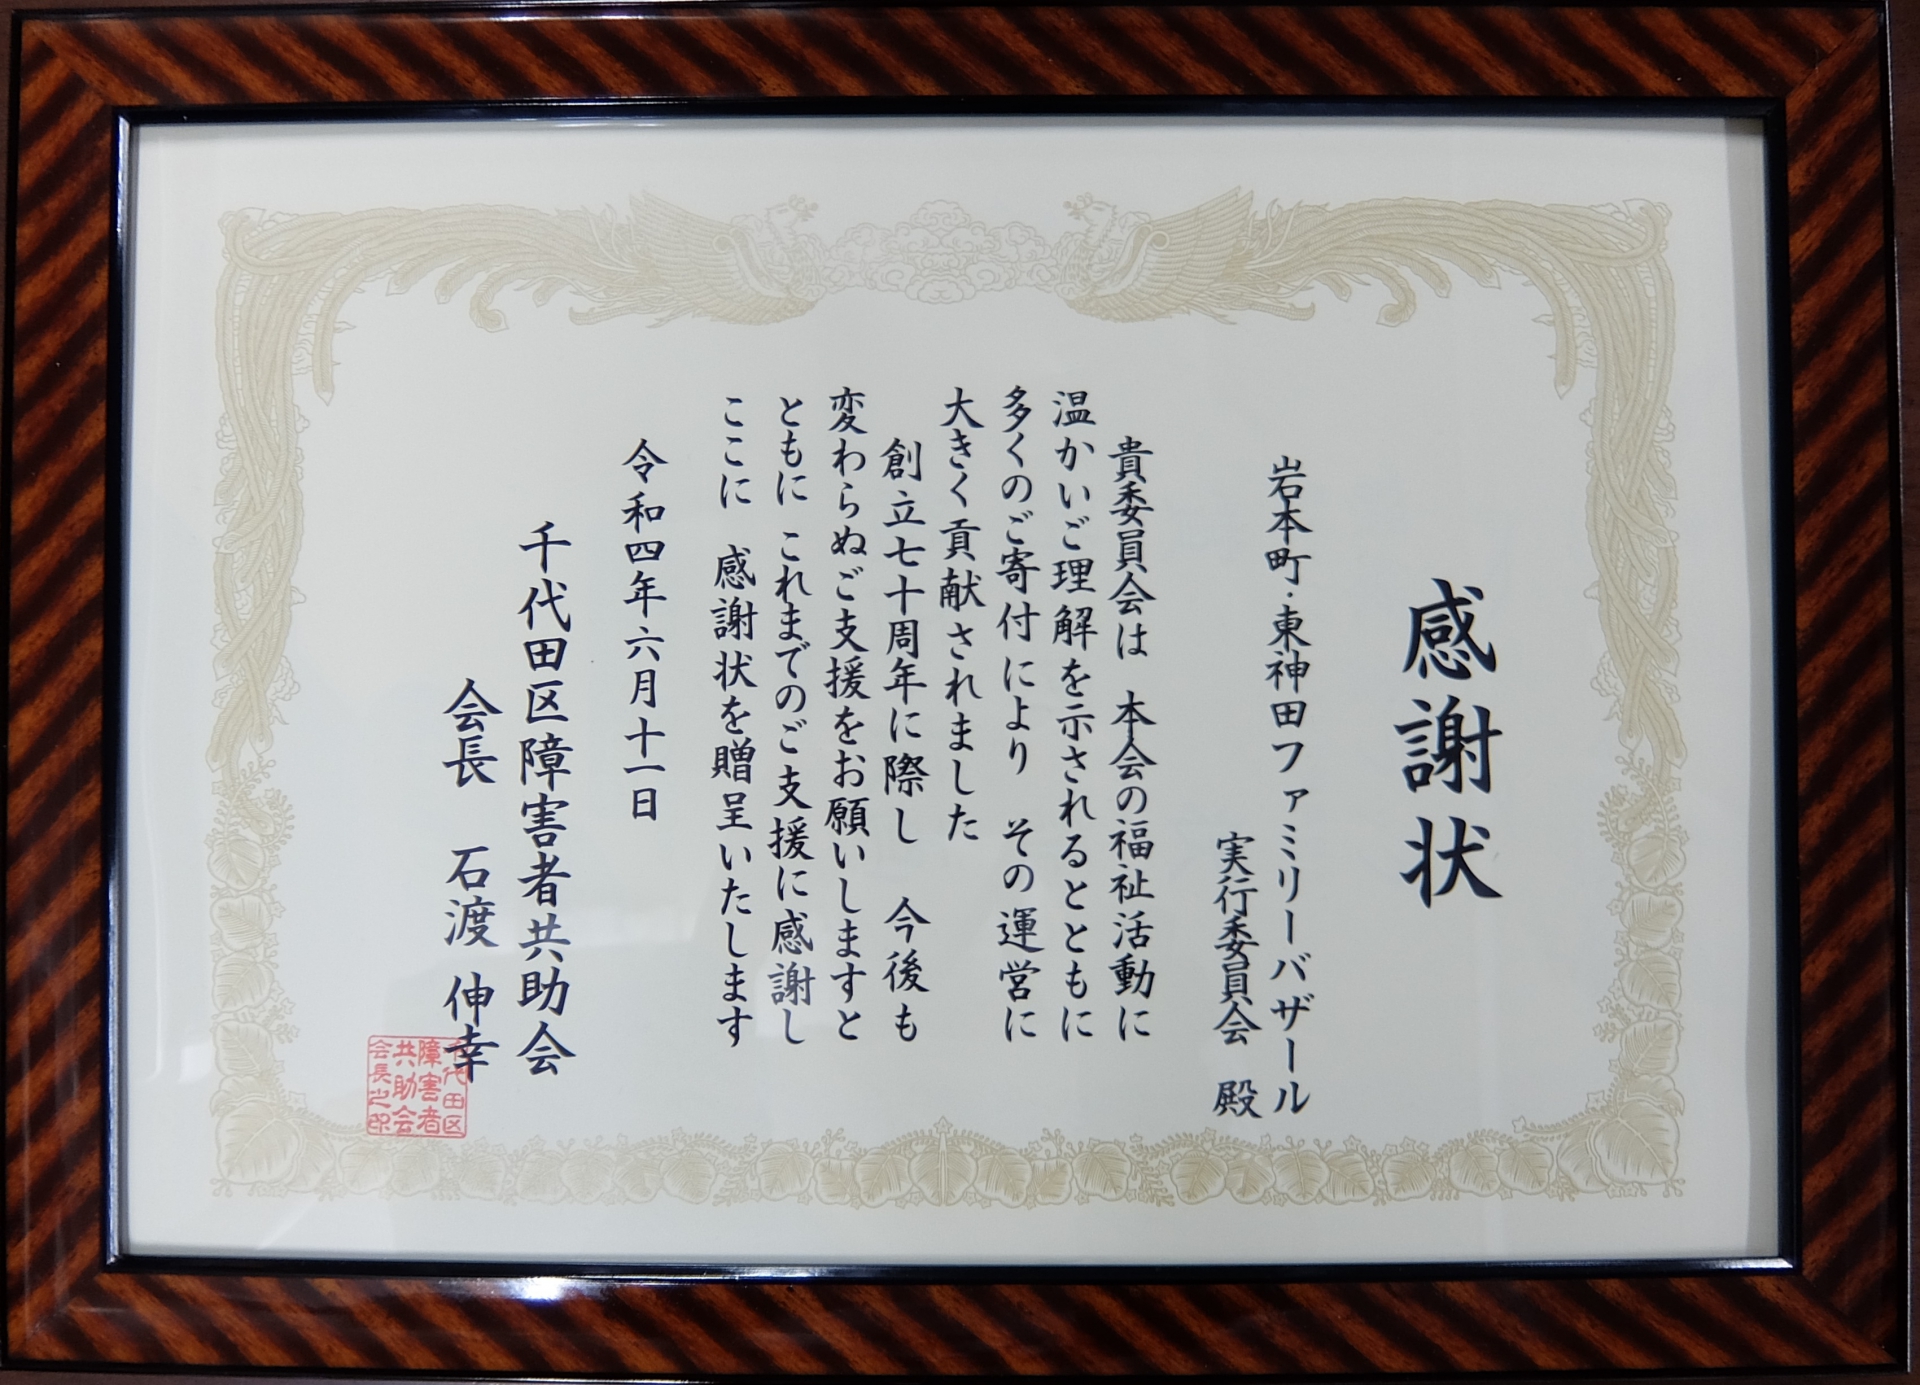 感謝状
岩本町・東神田ファミリーバザール
実行委員会 殿
貴委員会は 本会の福祉活動に
温かいご理解を示されるとともに
多くのご寄付により その運営に
大きく貢献されました
創立七十周年に際し 今後も
変わらぬご支援をお願いしますと
ともに これまでのご支援に感謝し
ここに 感謝状を贈呈いたします
令和四年六月十一日
千代田区障害者共助会
会長 石渡 伸幸
千代田区
障害者
共助会
会長之印